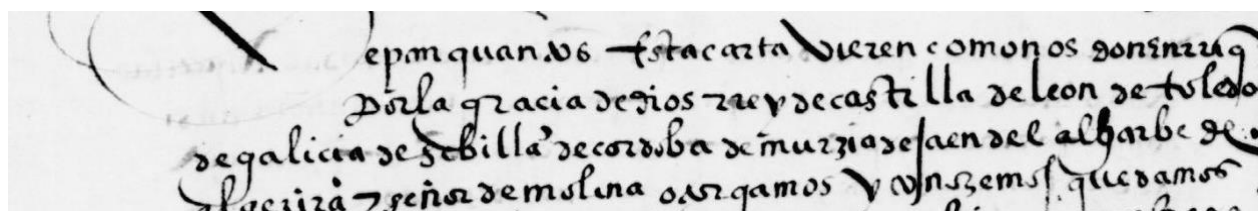 epan quantos Esta carta Vieren como nos don enrriq
Por la gracia de dios rrey de castilla de leon de toledo
de galicia de sebilla de cordoba de murzia de Jaen del algarbe de
algezira z señor de molina otorgamos y conozemos que damos